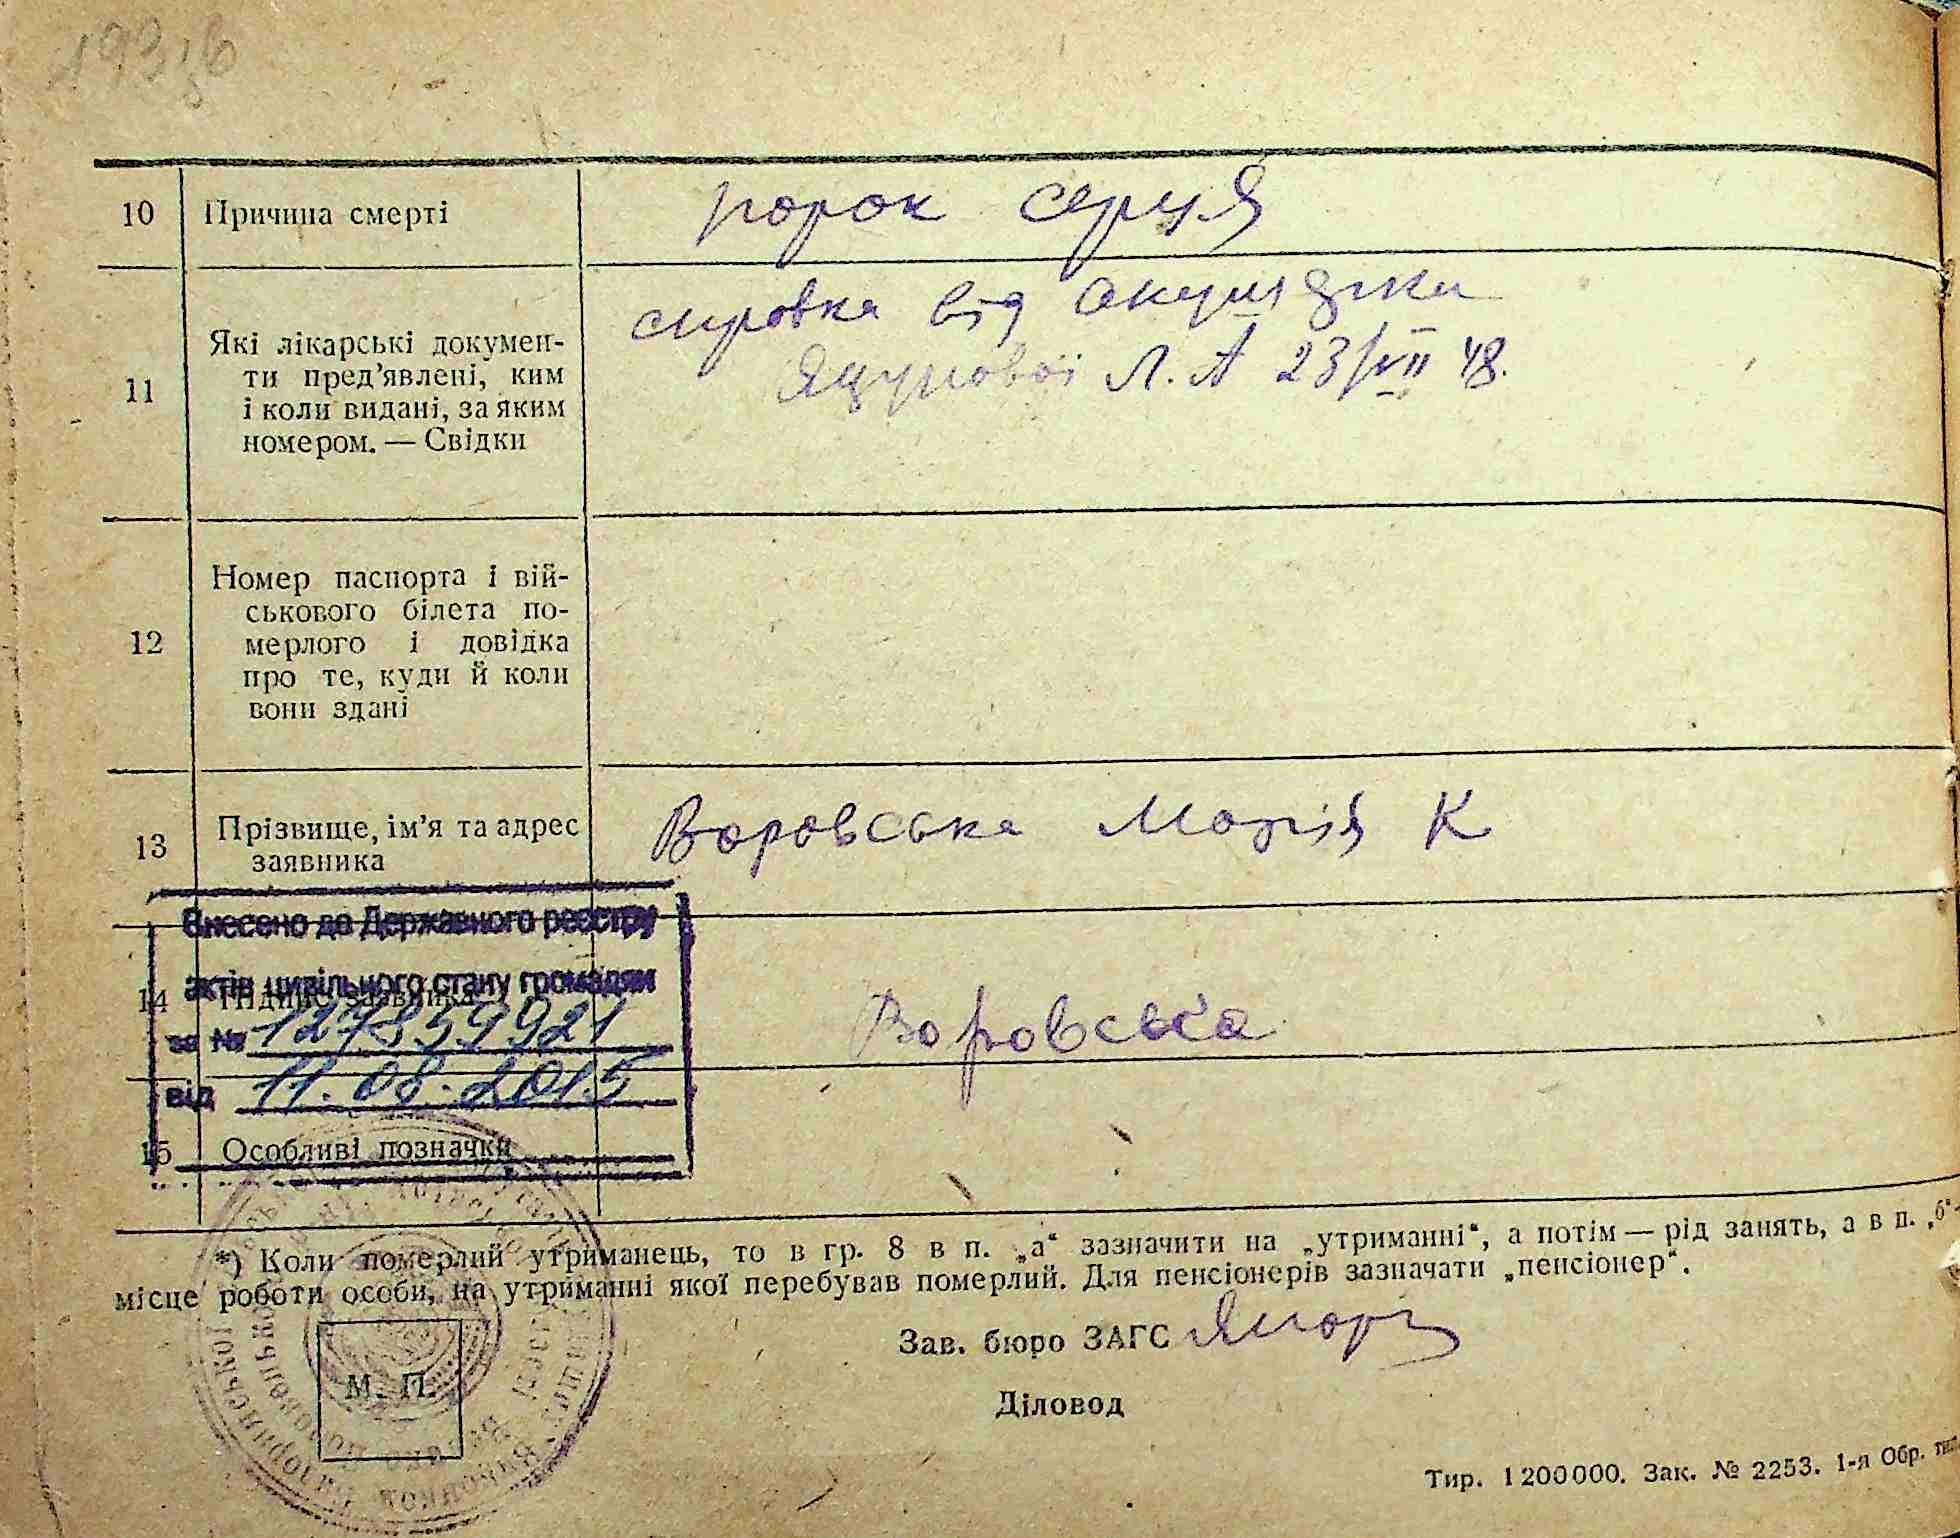 10 Причина смерті порок серця
11 Які лікарські докумен-
ти пред’явлені, ким
і коли видані, за яким
номером. — Свідки
справка від акушерки
Яцунової Л. А 23/VII 48.
12 Номер паспорта і вій-
ськового білета по-
мерлого і довідка
про те, куди й коли
вони здані
13 Прізвище, ім’я та адрес
заявника
Воровська Марія К
Внесено до Державного реєстру
актів цивільного стану громадян
14 Підпис заявника
Воровська
за № 127859921
від 11.08.2015
15 Особливі позначки
*) Коли померлий утриманець, то в гр. 8 в п. „а“ зазначити на „утриманні“, а потім — рід занять, а в п. „б“ —
місце роботи особи, на утриманні якої перебував померлий. Для пенсіонерів зазначати „пенсіонер“.
Зав. бюро ЗАГС
М. П.
Діловод
Тир. 1200000. Зак. № 2253. 1-я Обр. тип.